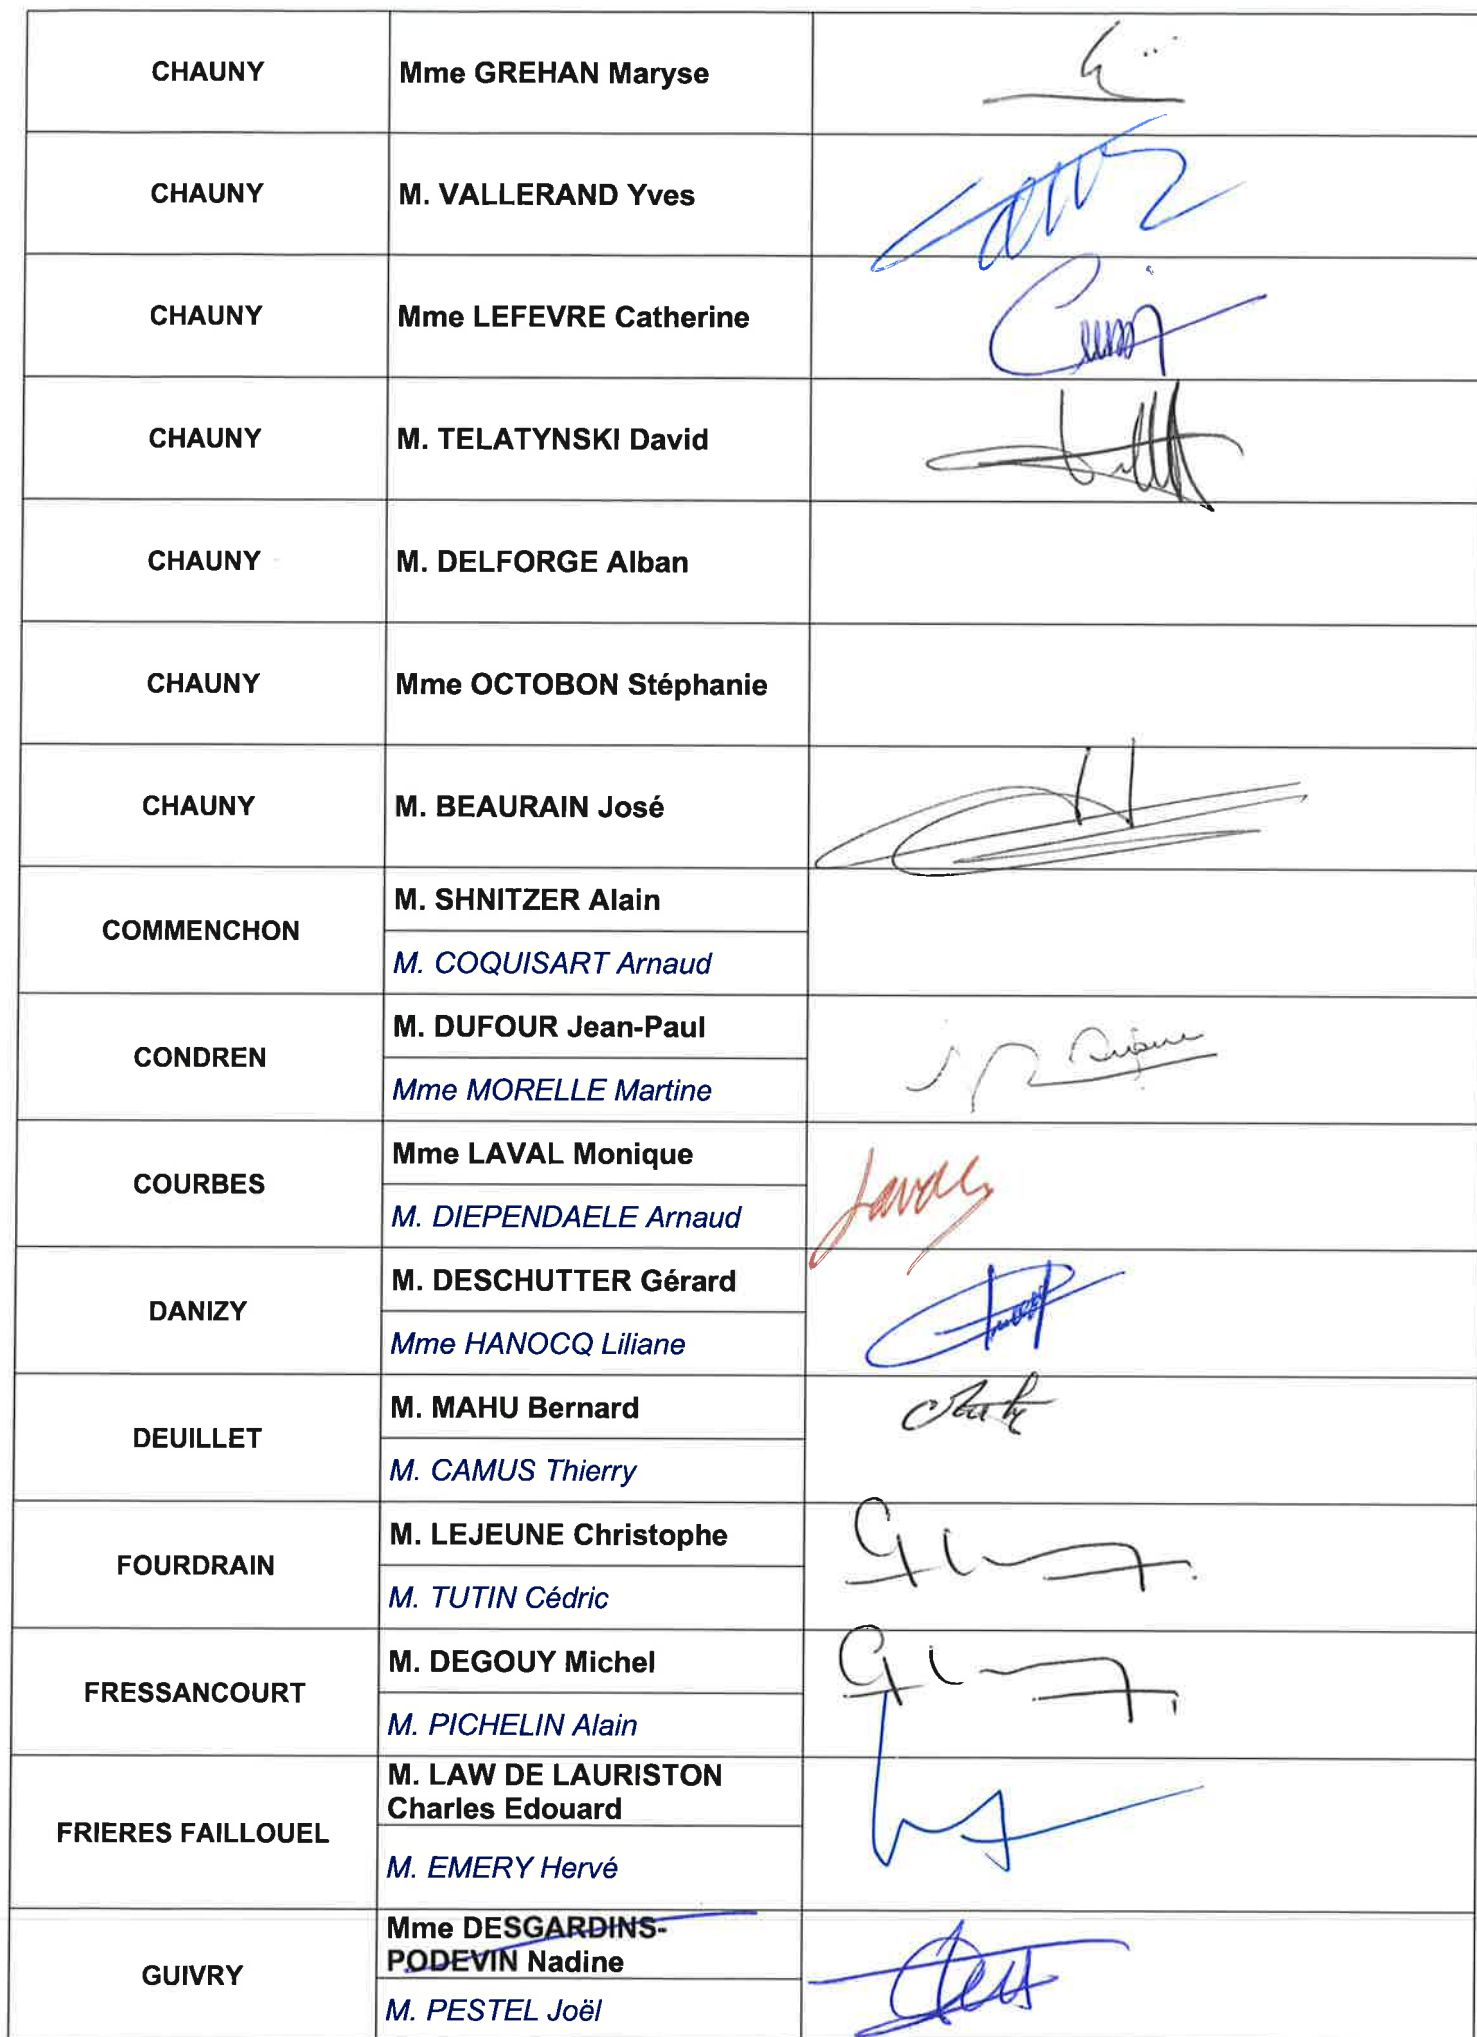 CHAUNY Mme GREHAN Maryse
CHAUNY M. VALLERAND Yves
CHAUNY Mme LEFEVRE Catherine
CHAUNY M. TELATYNSKI David
CHAUNY M. DELFORGE Alban
CHAUNY Mme OCTOBON Stéphanie
CHAUNY M. BEAURAIN José
COMMENCHON
M. SHNITZER Alain
M. COQUISART Arnaud
CONDREN
M. DUFOUR Jean-Paul
Mme MORELLE Martine
COURBES
Mme LAVAL Monique
M. DIEPENDAELE Arnaud
Laval
DANIZY
M. DESCHUTTER Gérard
Mme HANOCQ Liliane
DEUILLET
M. MAHU Bernard
M. CAMUS Thierry
FOURDRAIN
M. LEJEUNE Christophe
M. TUTIN Cédric
FRESSANCOURT
M. DEGOUY Michel
M. PICHELIN Alain
FRIERES FAILLOUEL
M. LAW DE LAURISTON
Charles Edouard
M. EMERY Hervé
GUIVRY
Mme DESGARDINS-
PODEVIN Nadine
M. PESTEL Joël